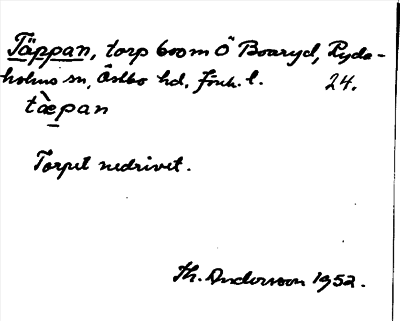 Täppan, torp 600 m Ö Boaryd, Ryda-
holms sn, Östbo hd, Jönk. l. 24.
tæ̀pan
Torpet nedrivet.
Th. Andersson 1952.